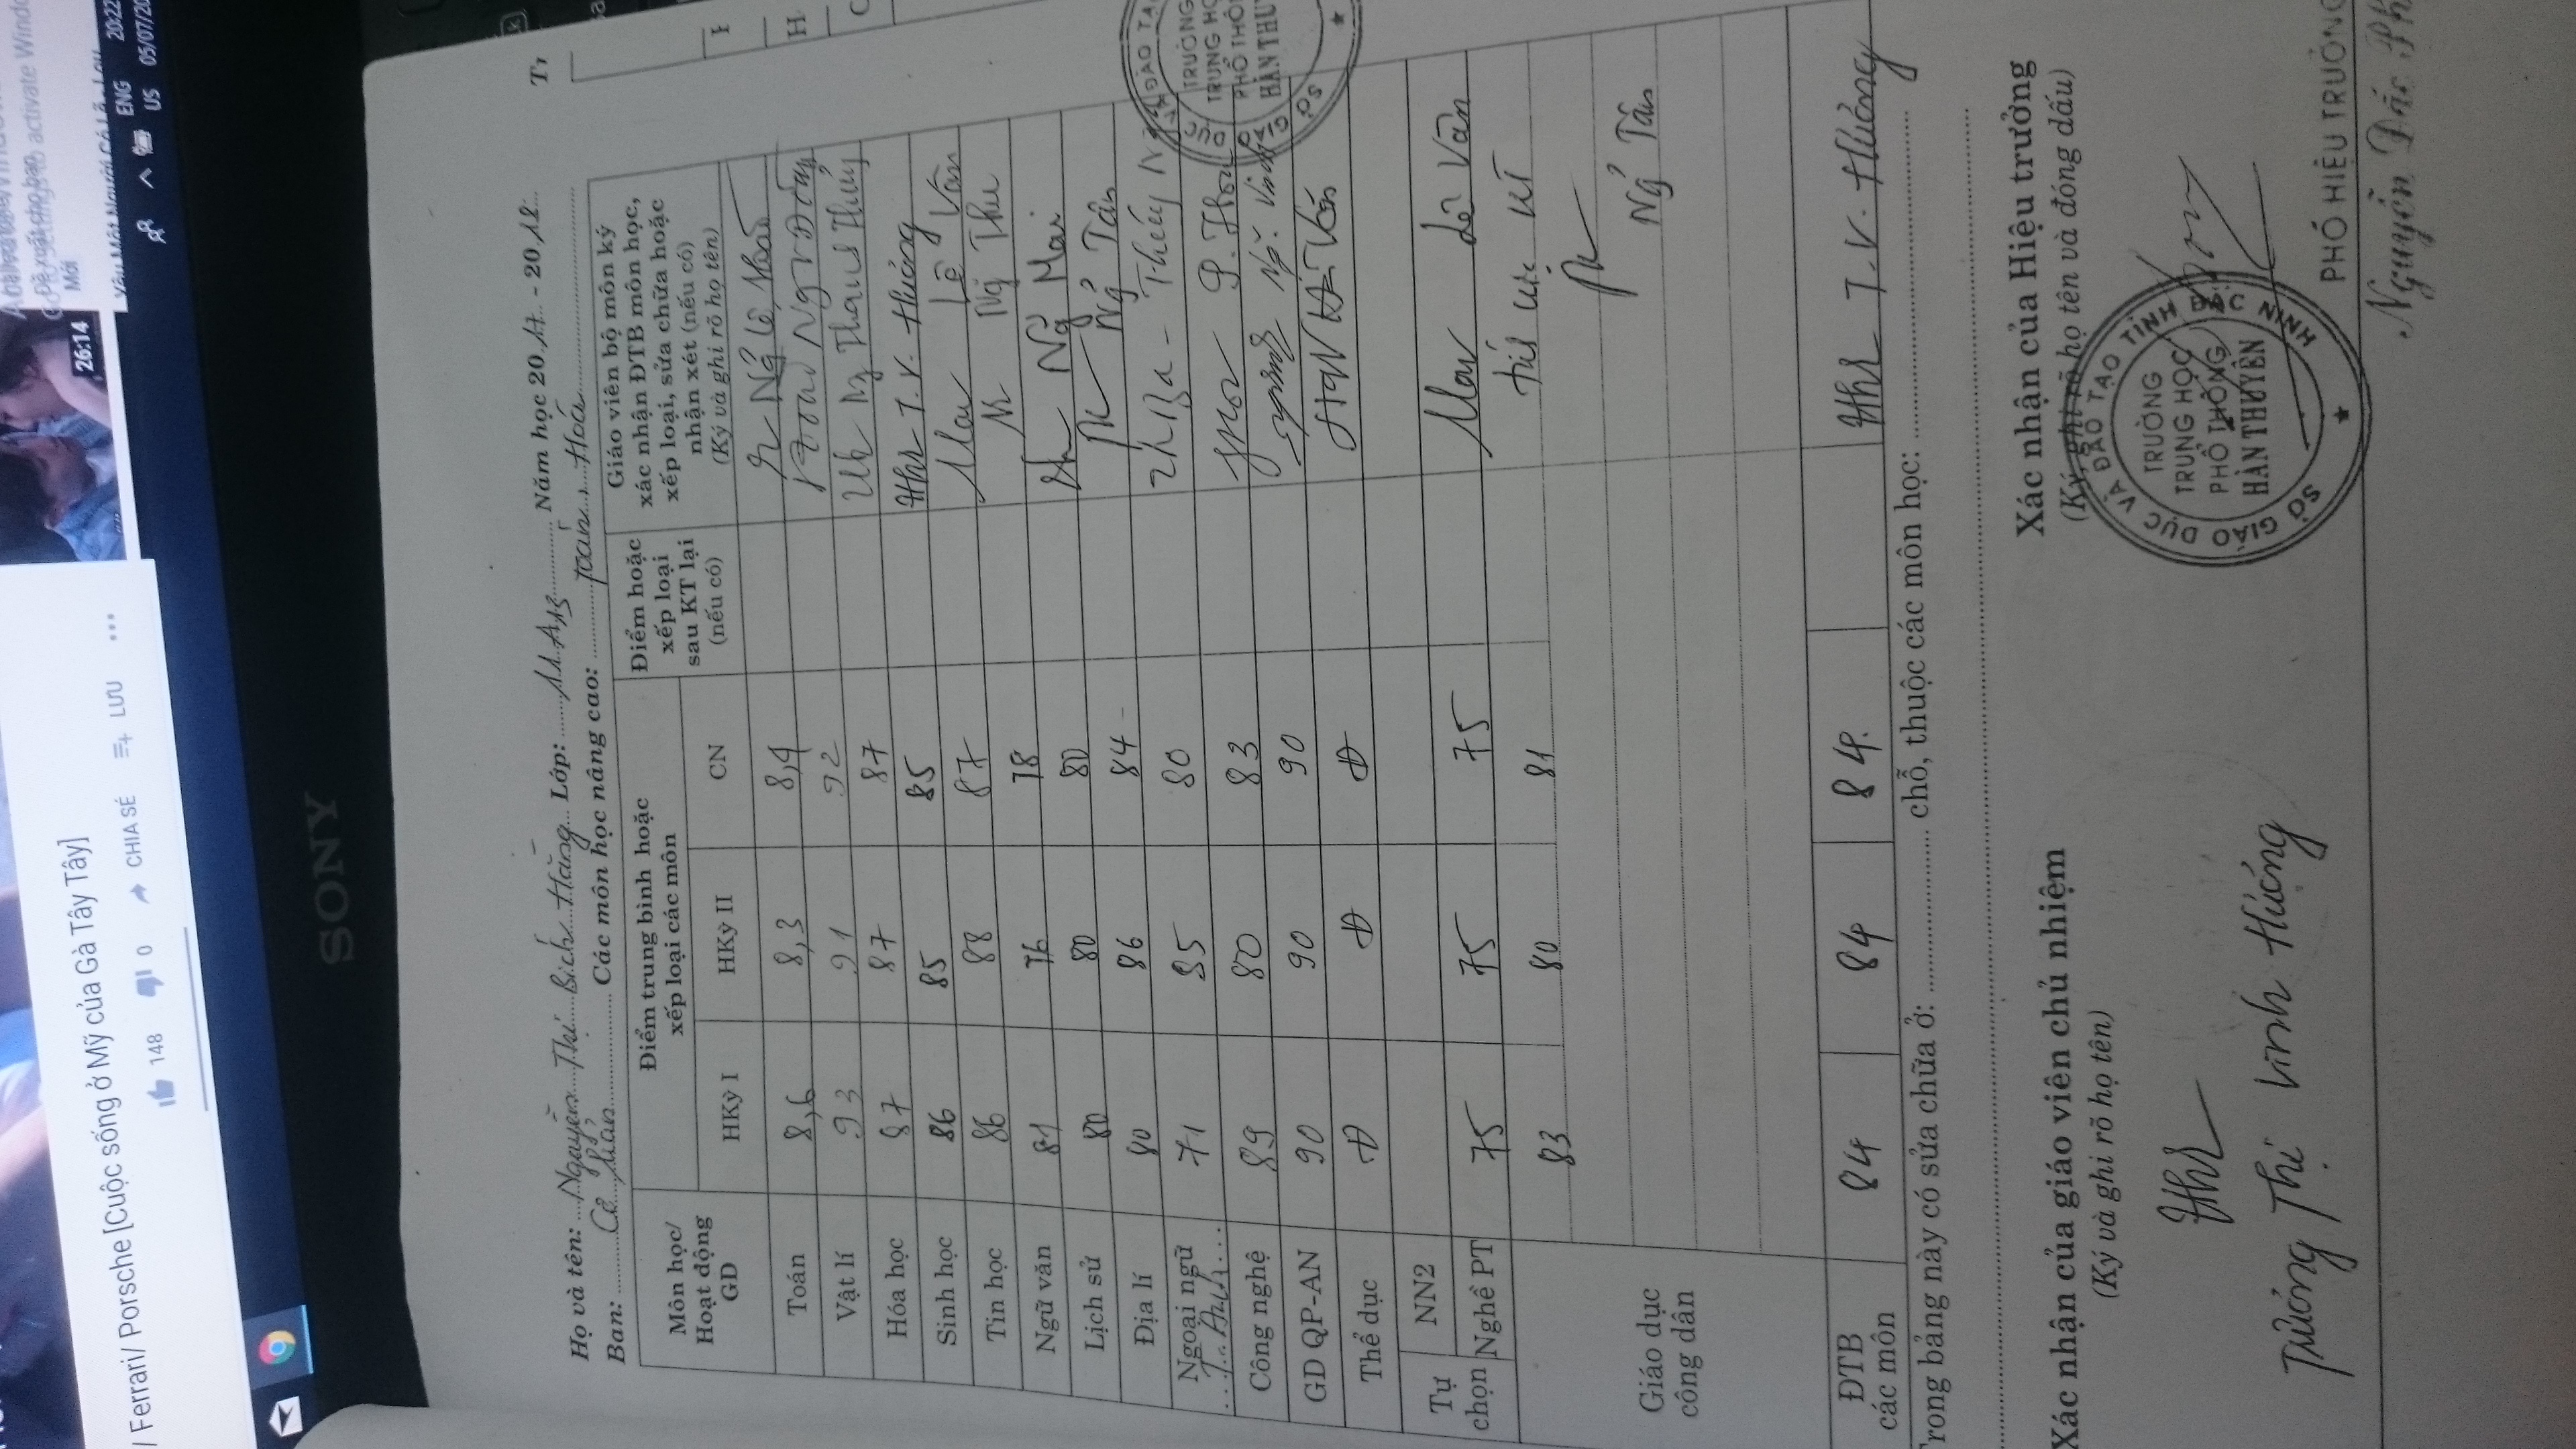 / Ferrari/ Porsche [Cuộc sống ở Mỹ của Gà Tây Tây]
148 0 CHIA SẺ LƯU
26:14
Đề xuất cho bạn
Mới
to activate Windo
ENG 20:22
US 05/07/20
SONY
Họ và tên: Nguyễn Thị Bích Hằng Lớp: 11A13 Năm học 2017 - 2018
Ban: Cơ bản Các môn học nâng cao: Toán, Hoá
Môn học/ Hoạt động GD
Điểm trung bình hoặc xếp loại các môn
HKỳ I HKỳ II CN
Điểm hoặc xếp loại sau KT lại (nếu có)
Giáo viên bộ môn ký xác nhận ĐTB môn học, xếp loại, sửa chữa hoặc nhận xét (nếu có) (Ký và ghi rõ họ tên)
Toán 8,6 8,3 8,4
Vật lí 93 91 92
Hóa học 87 87 87 Thanh Thủy
Sinh học 86 85 85 T.V. Hưởng
Tin học 86 88 87 Lê Vân
Ngữ văn 81 76 78 Ng Thu
Lịch sử 80 80 80 Ng Mai
Địa lí 80 86 84 Ng Tân
Ngoại ngữ 71 85 80
T. Anh
Công nghệ 89 80 83
GD QP-AN 90 90 90
Thể dục Đ Đ Đ
Tự chọn
NN2
Nghề PT 75 75 75 Lê Vân
Giáo dục công dân 83 80 81
Ng Tân
ĐTB các môn 84 84 84. T.V. Hưởng
Trong bảng này có sửa chữa ở: chỗ, thuộc các môn học:
Xác nhận của giáo viên chủ nhiệm
(Ký và ghi rõ họ tên)
Trương Thị Vinh Hưởng
Xác nhận của Hiệu trưởng
(Ký, ghi rõ họ tên và đóng dấu)
SỞ GIÁO DỤC VÀ ĐÀO TẠO TỈNH BẮC NINH
TRƯỜNG
TRUNG HỌC
PHỔ THÔNG
HÀN THUYÊN
PHÓ HIỆU TRƯỞNG
Nguyễn Đắc Ph